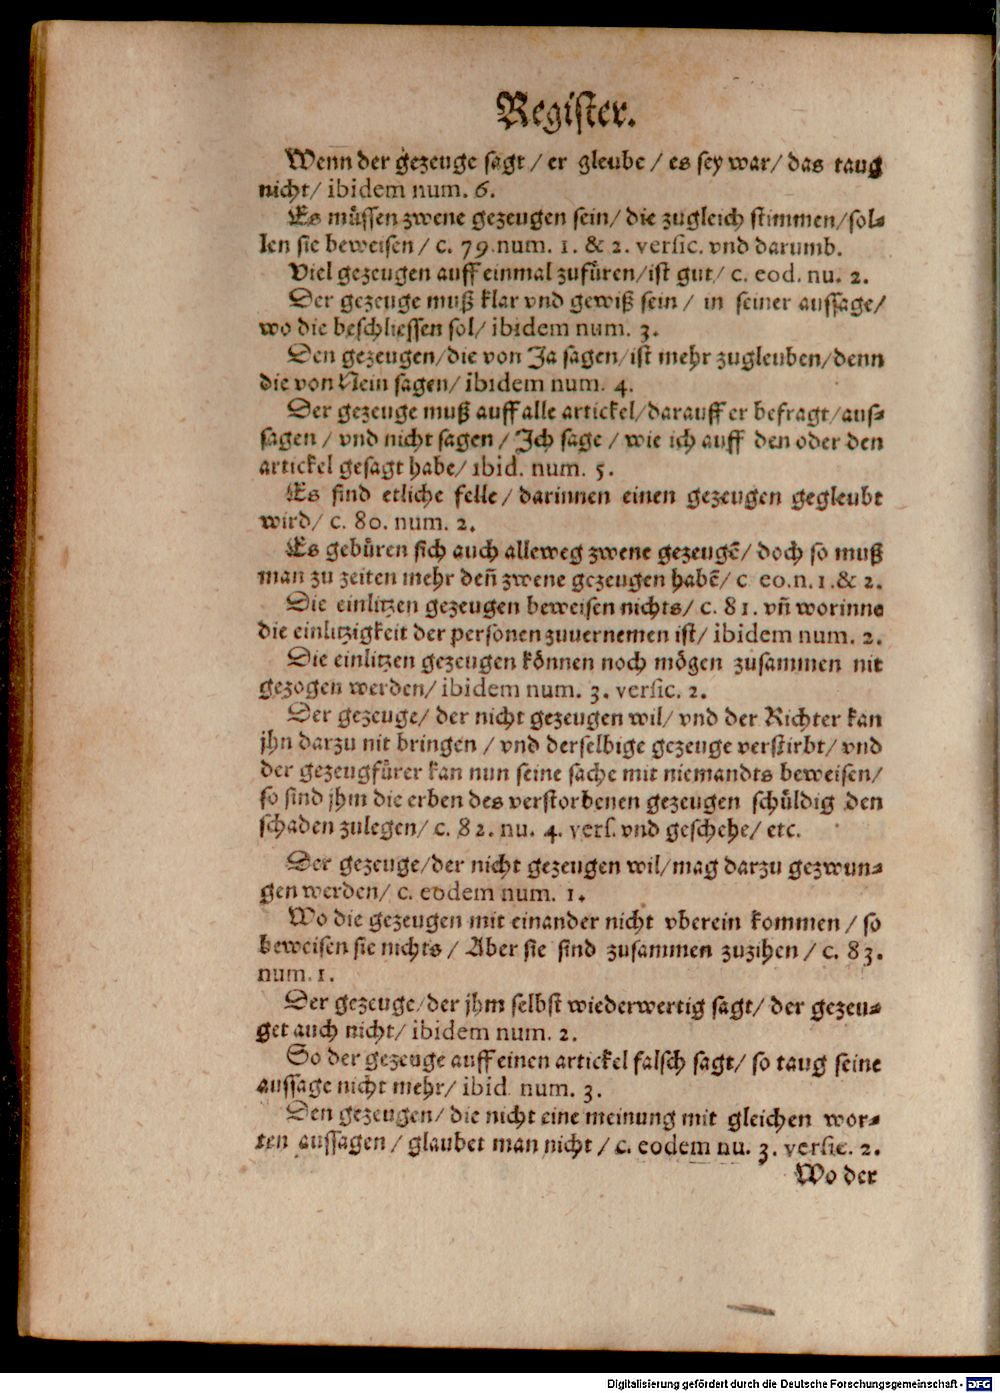 Register.
Wenn der gezeuge sagt / er gleube / es sey war / das taug
nicht / ibidem num. 6.
Es müssen zwene gezeugen sein / die zugleich stimmen / sol-
len sie beweisen / c. 79. num. 1. & 2. versic. vnd darumb.
Viel gezeugen auff einmal zufüren / ist gut / c. eod. nu. 2.
Der gezeuge muß klar vnd gewiß sein / in seiner aussage /
wo die beschliessen sol / ibidem num. 3.
Den gezeugen / die von Ja sagen / ist mehr zugleuben / denn
die von Nein sagen / ibidem num. 4.
Der gezeuge muß auff alle artickel / darauff er befragt / aus-
sagen / vnd nicht sagen / Ich sage / wie ich auff den oder den
artickel gesagt habe / ibid. num. 5.
Es sind etliche felle / darinnen einen gezeugen gegleubt
wird / c. 80. num. 2.
Es gebüren sich auch alleweg zwene gezeugẽ / doch so muß
man zu zeiten mehr deñ zwene gezeugen habẽ / c eo. n. 1. & 2.
Die einlitzen gezeugen beweisen nichts / c. 81. vñ worinne
die einlitzigkeit der personen zuuernemen ist / ibidem num. 2.
Die einlitzen gezeugen können noch mögen zusammen nit
gezogen werden / ibidem num. 3. versic. 2.
Der gezeuge / der nicht gezeugen wil / vnd der Richter kan
jhn darzu nit bringen / vnd derselbige gezeuge verstirbt / vnd
der gezeugfürer kan nun seine sache mit niemandts beweisen /
so sind jhm die erben des verstorbenen gezeugen schüldig den
schaden zulegen / c. 82. nu. 4. vers. vnd geschehe / etc.
Der gezeuge / der nicht gezeugen wil / mag darzu gezwun-
gen werden / c. eodem num. 1.
Wo die gezeugen mit einander nicht vberein kommen / so
beweisen sie nichts / Aber sie sind zusammen zuzihen / c. 83.
num. 1.
Der gezeuge / der jhm selbst wiederwertig sagt / der gezeu-
get auch nicht / ibidem num. 2.
So der gezeuge auff einen artickel falsch sagt / so taug seine
aussage nicht mehr / ibid. num. 3.
Den gezeugen / die nicht eine meinung mit gleichen wor-
ten aussagen / glaubet man nicht / c. eodem nu. 3. versic. 2.
Wo der
Digitalisierung gefördert durch die Deutsche Forschungsgemeinschaft - DFG